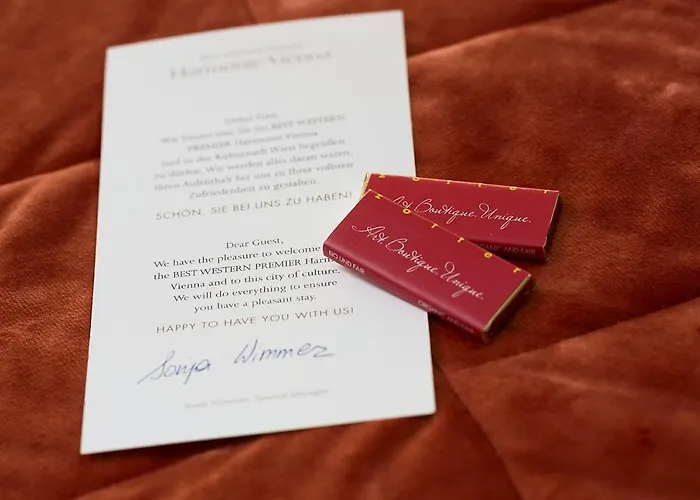 Harmonie Vienna
Lieber Gast,
Wir freuen uns, Sie im BEST WESTERN
PREMIER Harmonie Vienna
und in der Kulturstadt Wien begrüßen
zu dürfen. Wir werden alles daran setzen,
Ihren Aufenthalt bei uns zu Ihrer vollsten
Zufriedenheit zu gestalten.
SCHÖN, SIE BEI UNS ZU HABEN!
Dear Guest,
We have the pleasure to welcome
the BEST WESTERN PREMIER
Vienna and to this city of culture.
We will do everything to ensure
you have a pleasant stay.
HAPPY TO HAVE YOU WITH US!
Sonja Wimmer
Art. Boutique. Unique.
ORGANIC AND FAIR
zotter
Art. Boutique. Unique.
BIO UND FAIR
ORGANIC AND FAIR